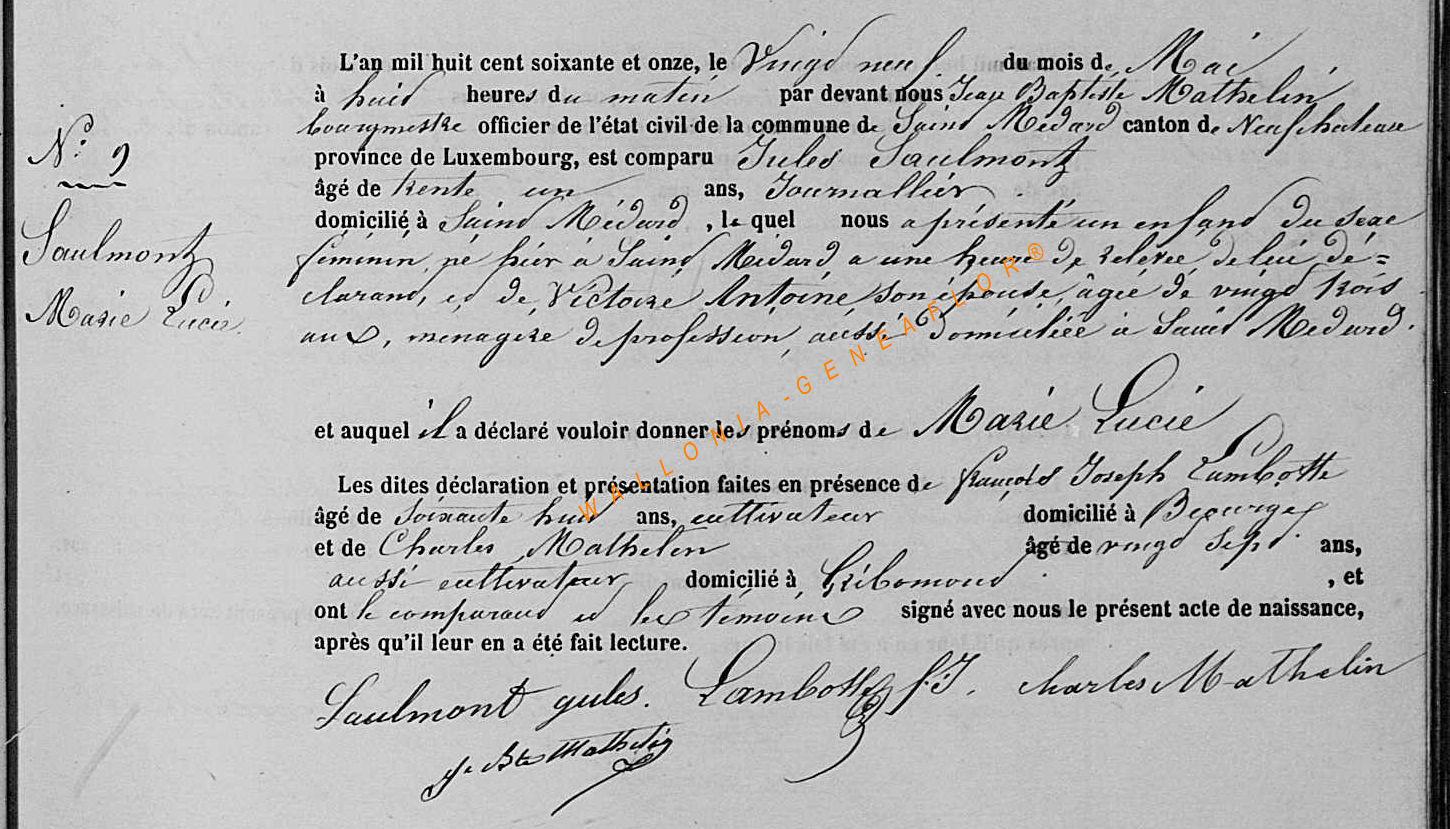 L'an mil huit cent soixante et onze, le Vingt neuf du mois de Mai
à huit heures du matin par devant nous Jean Baptiste Mathelin
bourgmestre officier de l'état civil de la commune de Saint Médard canton de Neufchateau
province de Luxembourg, est comparu Jules Saulmont
âgé de trente un ans, Journallier
domicilié à Saint Médard, le quel nous a présenté un enfant du sexe
féminin, né hier à Saint Médard a une heure de relevée de lui dé=
clarant, et de Victoire Antoine son épouse, âgée de vingt trois
ans, menagere de profession, aussi domiciliée à Saint Médard.
et auquel il a déclaré vouloir donner les prénoms de Marie Lucie
Les dites déclaration et présentation faites en présence de françois Joseph Lambotte
âgé de soixante huit ans, cultivateur domicilié à
et de Charles Mathelin âgé de vingt sept ans,
aussi cultivateur domicilié à Gribomont, et
ont le comparant et les témoins signé avec nous le présent acte de naissance,
après qu'il leur en a été fait lecture.
Saulmont jules. Lambotte f. J. charles Mathelin
J Bte Mathelin
N° 9
Saulmont
Marie Lucie
WALLONIA-GENEAFLOR®